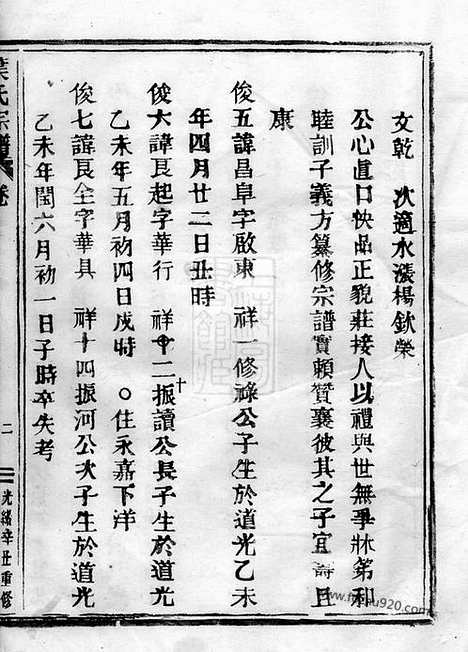 文乾 次適水漲楊欽榮
公心直口快品正貌莊接人以禮與世無爭牀第和
睦訓子義方纂修宗譜實賴贊襄彼其之子宜壽且
康
俊五諱昌阜字啟東 祥一修祿公子生於道光乙未
年四月廿二日丑時
俊六諱良起字華行 祥十二振讀公長子生於道光
乙未年五月初四日戌時 ○住永嘉下洋
俊七諱良全字華具 祥十四振河公次子生於道光
乙未年閏六月初一日子時卒失考
葉氏宗譜 卷
二
光緒辛丑重修